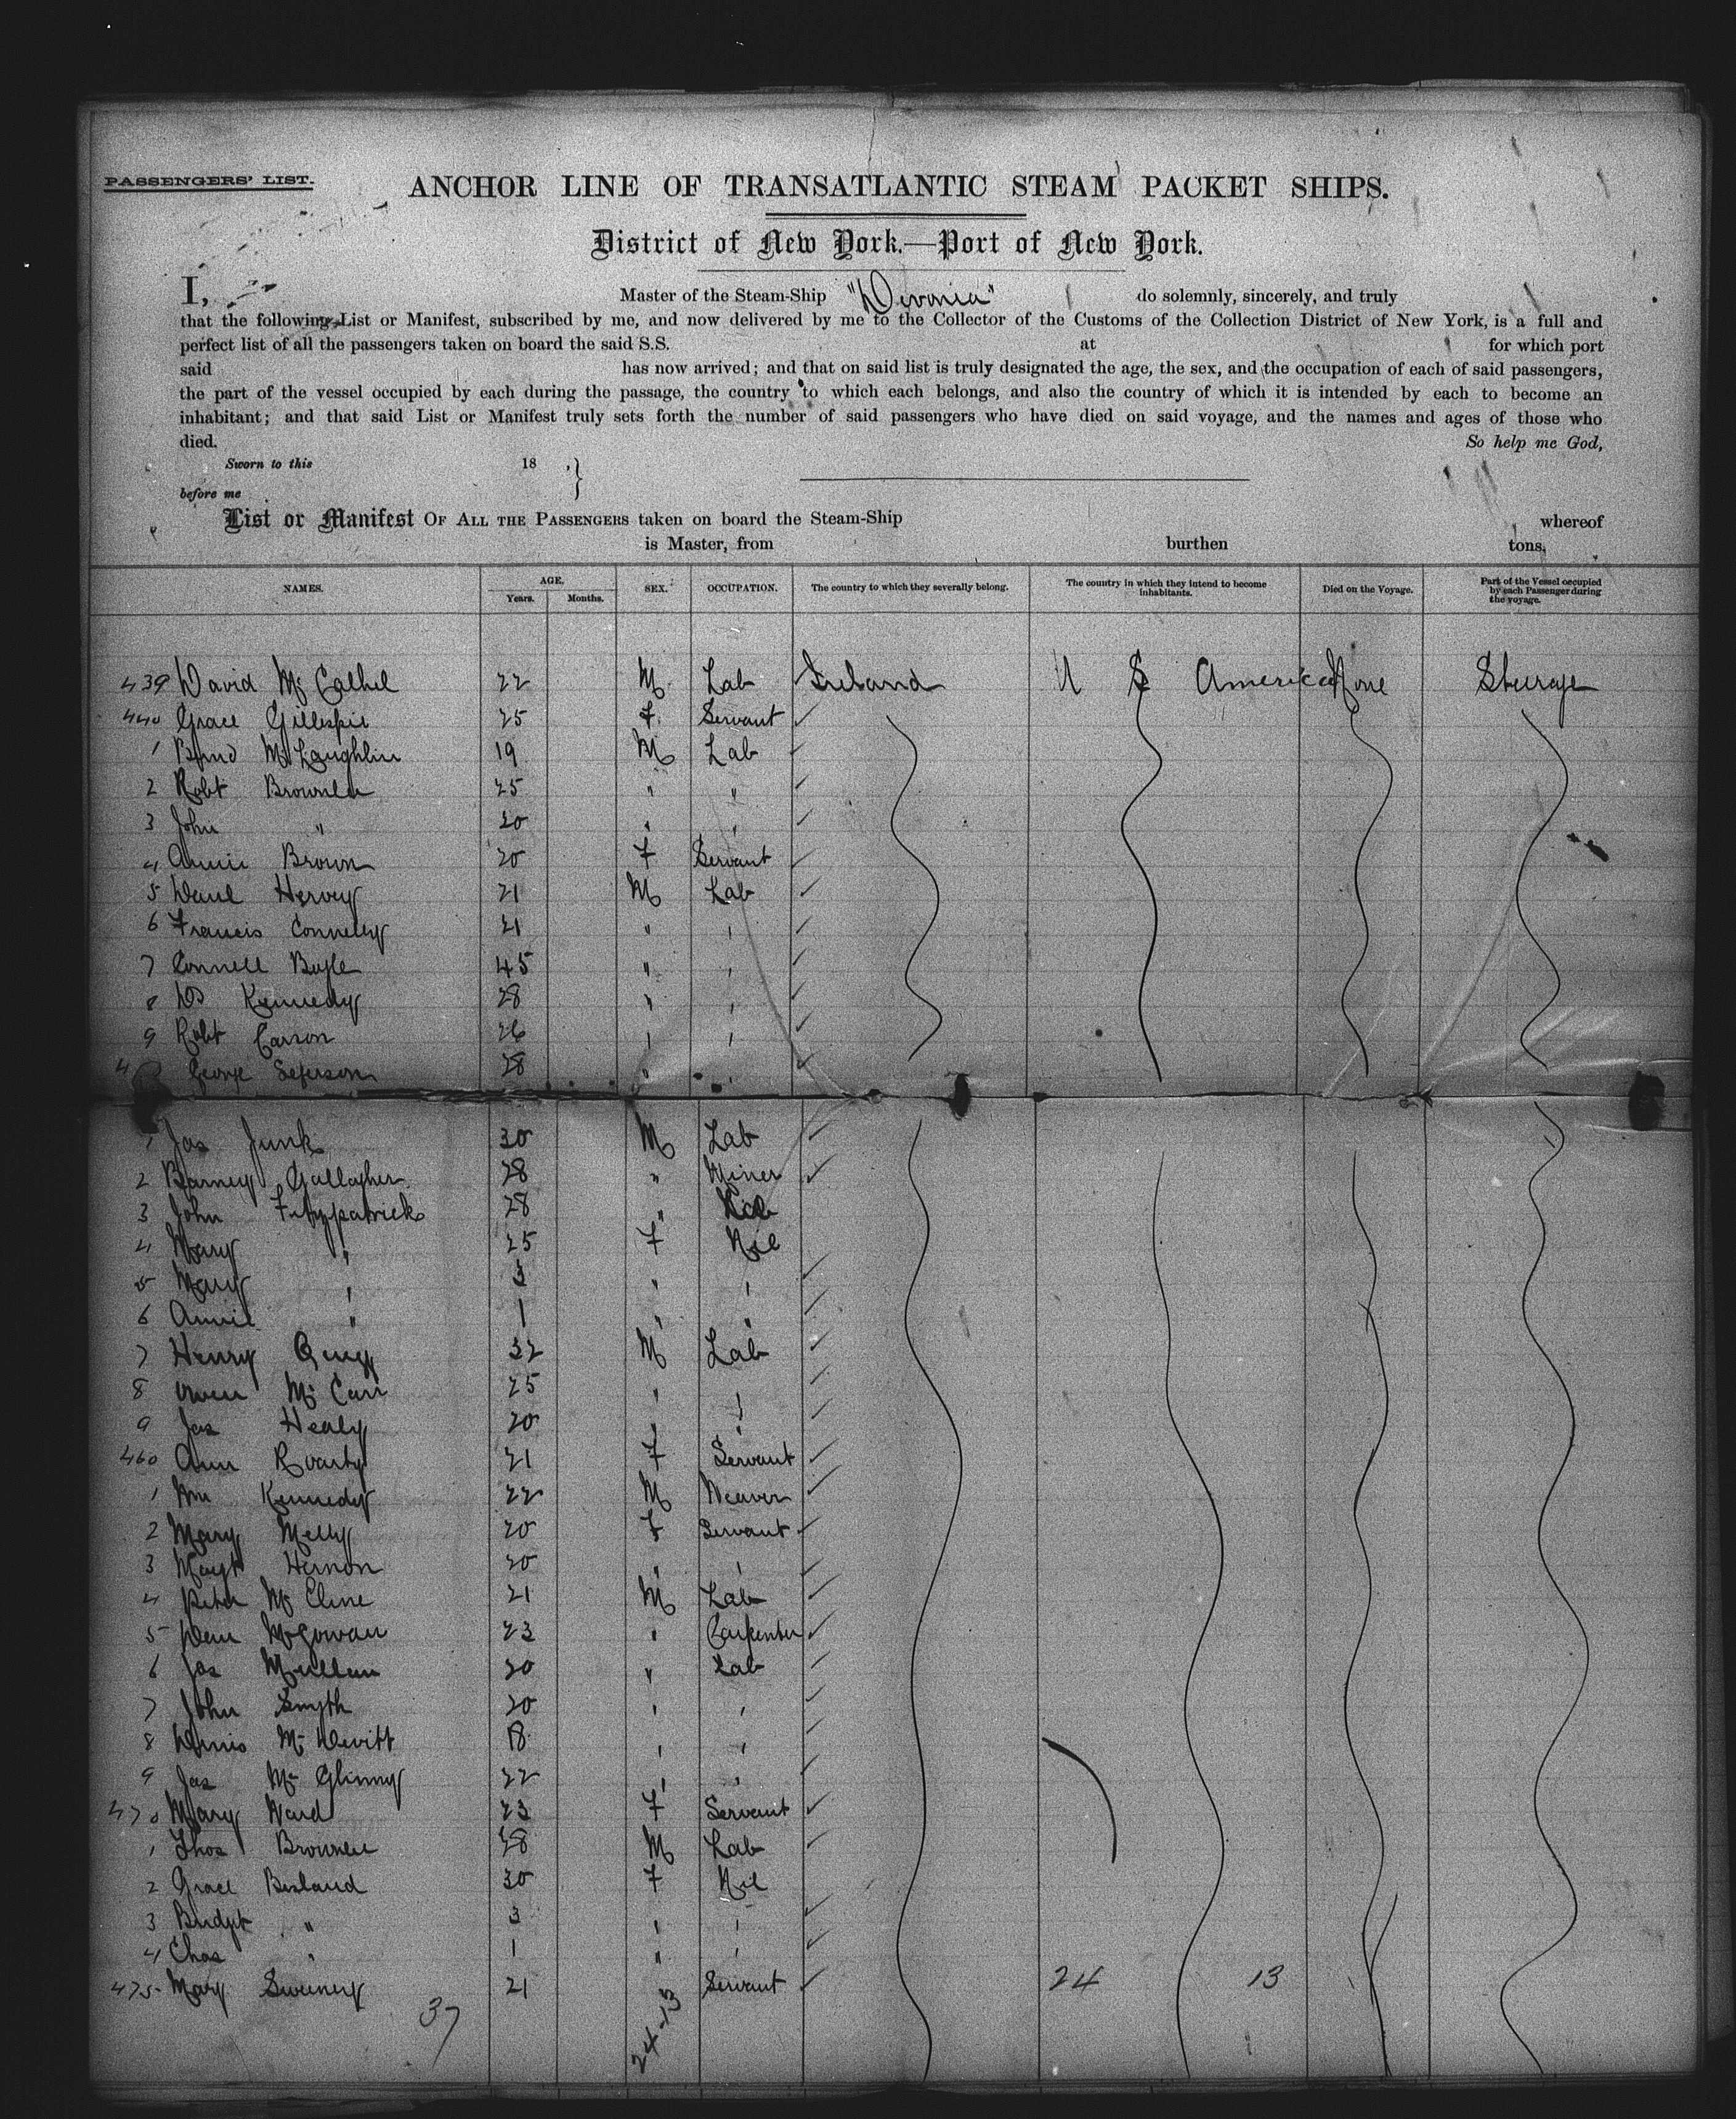 PASSENGERS' LIST.
ANCHOR LINE OF TRANSATLANTIC STEAM PACKET SHIPS.
District of New York.—Port of New York.
I, Master of the Steam-Ship "Devonia" do solemnly, sincerely, and truly
that the following List or Manifest, subscribed by me, and now delivered by me to the Collector of the Customs of the Collection District of New York, is a full and
perfect list of all the passengers taken on board the said S.S. at for which port
said has now arrived; and that on said list is truly designated the age, the sex, and the occupation of each of said passengers,
the part of the vessel occupied by each during the passage, the country to which each belongs, and also the country of which it is intended by each to become an
inhabitant; and that said List or Manifest truly sets forth the number of said passengers who have died on said voyage, and the names and ages of those who
died. So help me God,
Sworn to this 18 ,}
before me
List or Manifest OF ALL THE PASSENGERS taken on board the Steam-Ship whereof
is Master, from burthen tons.
NAMES. AGE. Years. Months. SEX. OCCUPATION. The country to which they severally belong. The country in which they intend to become inhabitants. Died on the Voyage. Part of the Vessel occupied by each Passenger during the voyage.
439 David Mc Cathel 22 M Lab Ireland U S America None Steerage
440 Grace Gillespie 25 F Servant
1 McLaughlin 19 M Lab
2 Robt Brownlee 25 " "
3 John " 20 " "
4 Annie Brown 20 F Servant
5 Danl Hervey 21 M Lab
6 Francis Connelly 21 " "
7 Connell Boyle 45 " "
8 Kennedy 28 " "
9 Robt Carson 26 " "
George 28 " "
1 Jas Junk 30 M Lab
2 Barney Gallagher 28 " Miner
3 John Fitzpatrick 28 " Lab
4 Mary " 25 F Nil
5 Mary " 3 " "
6 Annie " 1 " "
7 Henry 32 M Lab
8 Owen Mc Carr 25 " "
9 Jas Healy 20 " "
460 Ann Roarty 21 F Servant
1 Wm Kennedy 22 M Weaver
2 Mary Melly 20 F Servant
3 Magt Hernon 20 " "
4 Peter Mc Cline 21 M Lab
5 McGowan 23 " Carpenter
6 Jas Mullan 20 " Lab
7 John Smyth 20 " "
8 Dennis Mc Devitt 18 " "
9 Jas Mc Glinny 22 " "
470 Mary Ward 23 F Servant
1 Thos Brownlee 28 M Lab
2 Grace Boland 30 F Nil
3 Bridgt " 3 " "
4 Chas " 1 " "
475 Mary Sweeney 21 Servant 24 13
37 24-13